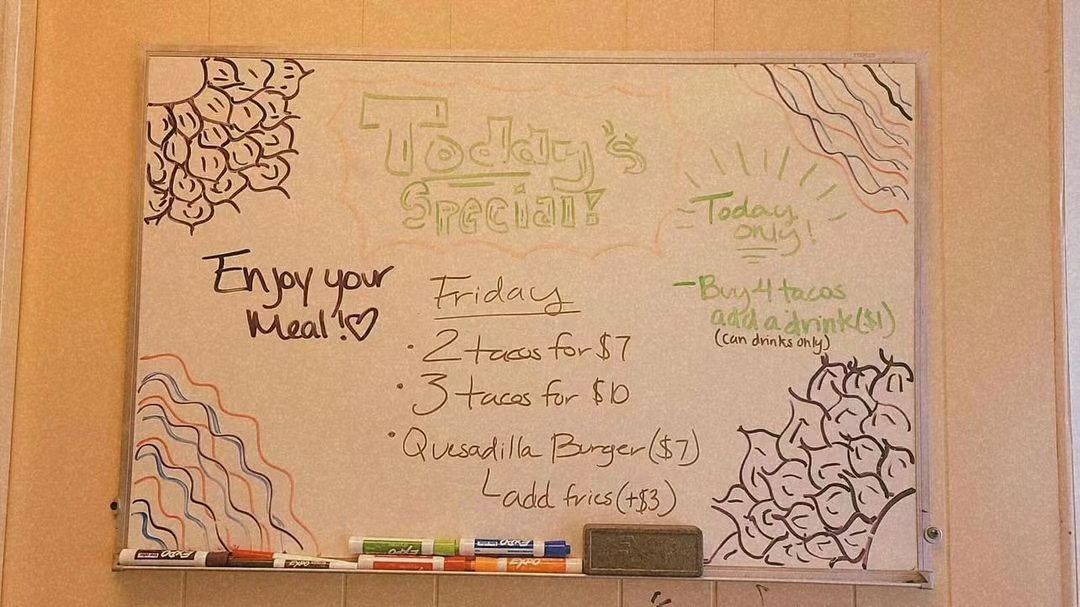 Today's
Special!
Today
only!
Enjoy your
Meal!♡
Friday
• 2 tacos for $7
• 3 tacos for $10
• Quesadilla Burger ($7)
└add fries (+$3)
- Buy 4 tacos
add a drink ($1)
(can drinks only)
EXPO
EXPO
EXPO
EXPO